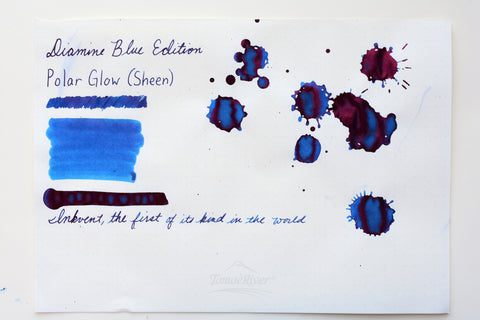 Diamine Blue Edition
Polar Glow (Sheen)
Inkvent, the first of its kind in the world
Tomoe River